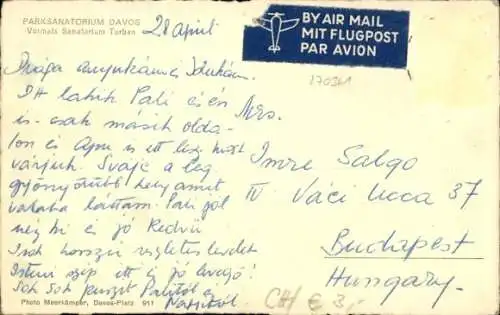 PARKSANATORIUM DAVOS
Vormals Sanatorium Turban
28 April
BY AIR MAIL
MIT FLUGPOST
PAR AVION
Drága anyukám és
Itt lakik Pali és én
is csak másik olda-
lon és Apu is itt lesz most
várjuk. Svájc a leg
gyönyörűbb hely amit
valaha láttam. Pali jól
néz ki és jó kedvű
Sok hosszú részletes levelet
itt és jó levegő!
Sok Sok puszit Palitól és
Mrs.
Imre Salgo
IV Váci Ucca 37
Budapest
Hungary.
Photo Meerkämper, Davos-Platz 911
CH/ € 3,-